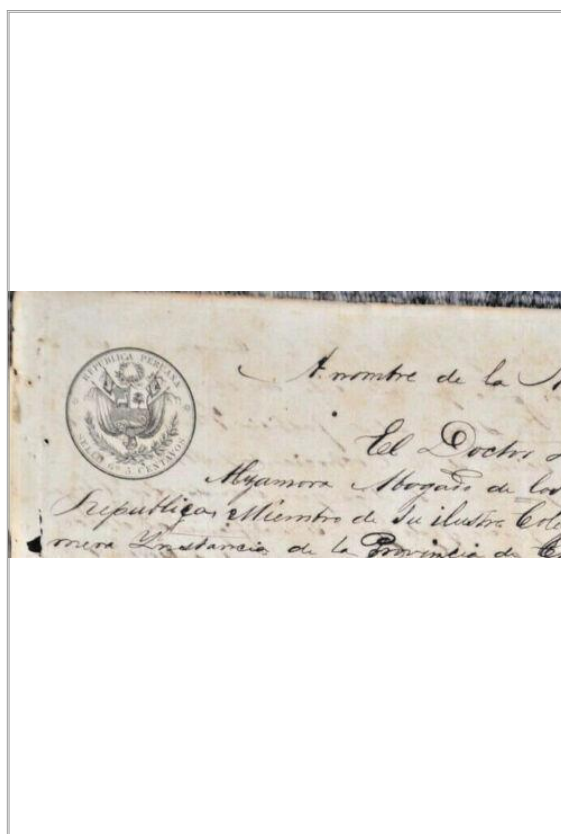 REPUBLICA PERUANA
SELLO 6º 5 CENTAVOS
A nombre de la
El Doctor
Abogado de los
Republica, Miembro de su ilustre Cole
mera Ynstancia de la Provincia de